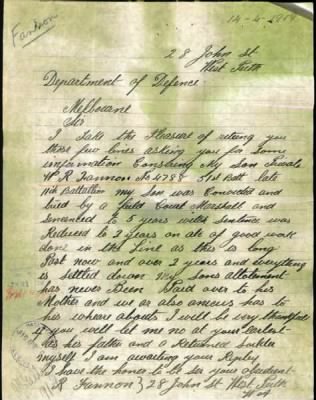 Fannon
14-4-1919
28 John St
West Perth
Department of Defence
Melbourne
Sir
I Take the Pleasure of writing you
these few lines asking you for some
information Conserning My Son Private
W R Fannon No 4788 51st Batt late
11th Battallion my Son was Convicted and
tried by a field Court Marshell and
Sentenced to 5 years witch Sentence was
Reduced to 2 years on ac of good work
done in the Line as this is long
Past now and over 2 years and everything
is settled down My Sons allotment
has never Been Paid over to his
Mother and we ar also ancious has to
his wheare abouts I will be very thankfull
if you will let me no at your Earlest
has his father and a Returned Soulder
myself I am awaiting your Repley
I have the honor to be Sir your obedient
R Fannon 28 John St West Perth
WA